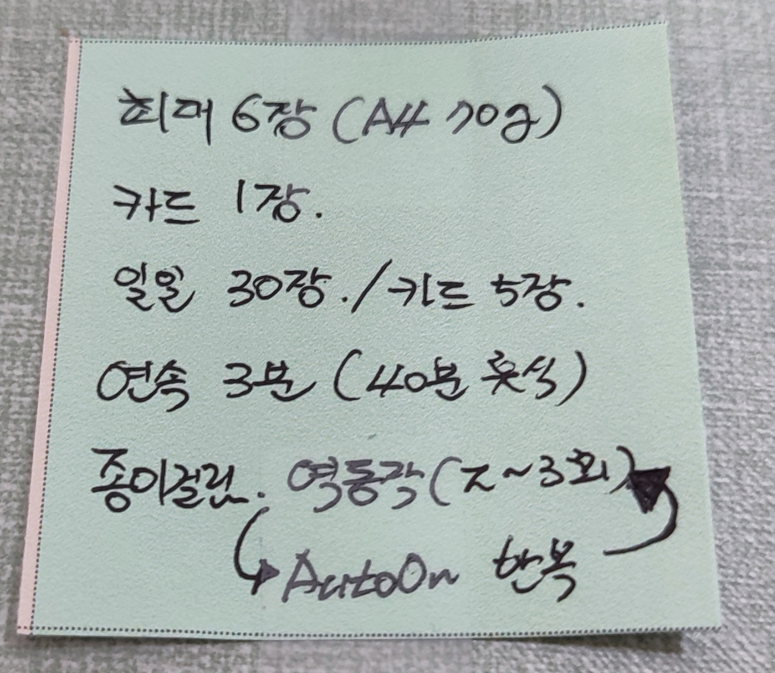 최대 6장 (A4 70g)
카드 1장.
일일 30장./카드 5장.
연속 3분 (40분 휴식)
종이걸림. 역동작(2~3회)
AutoOn 반복